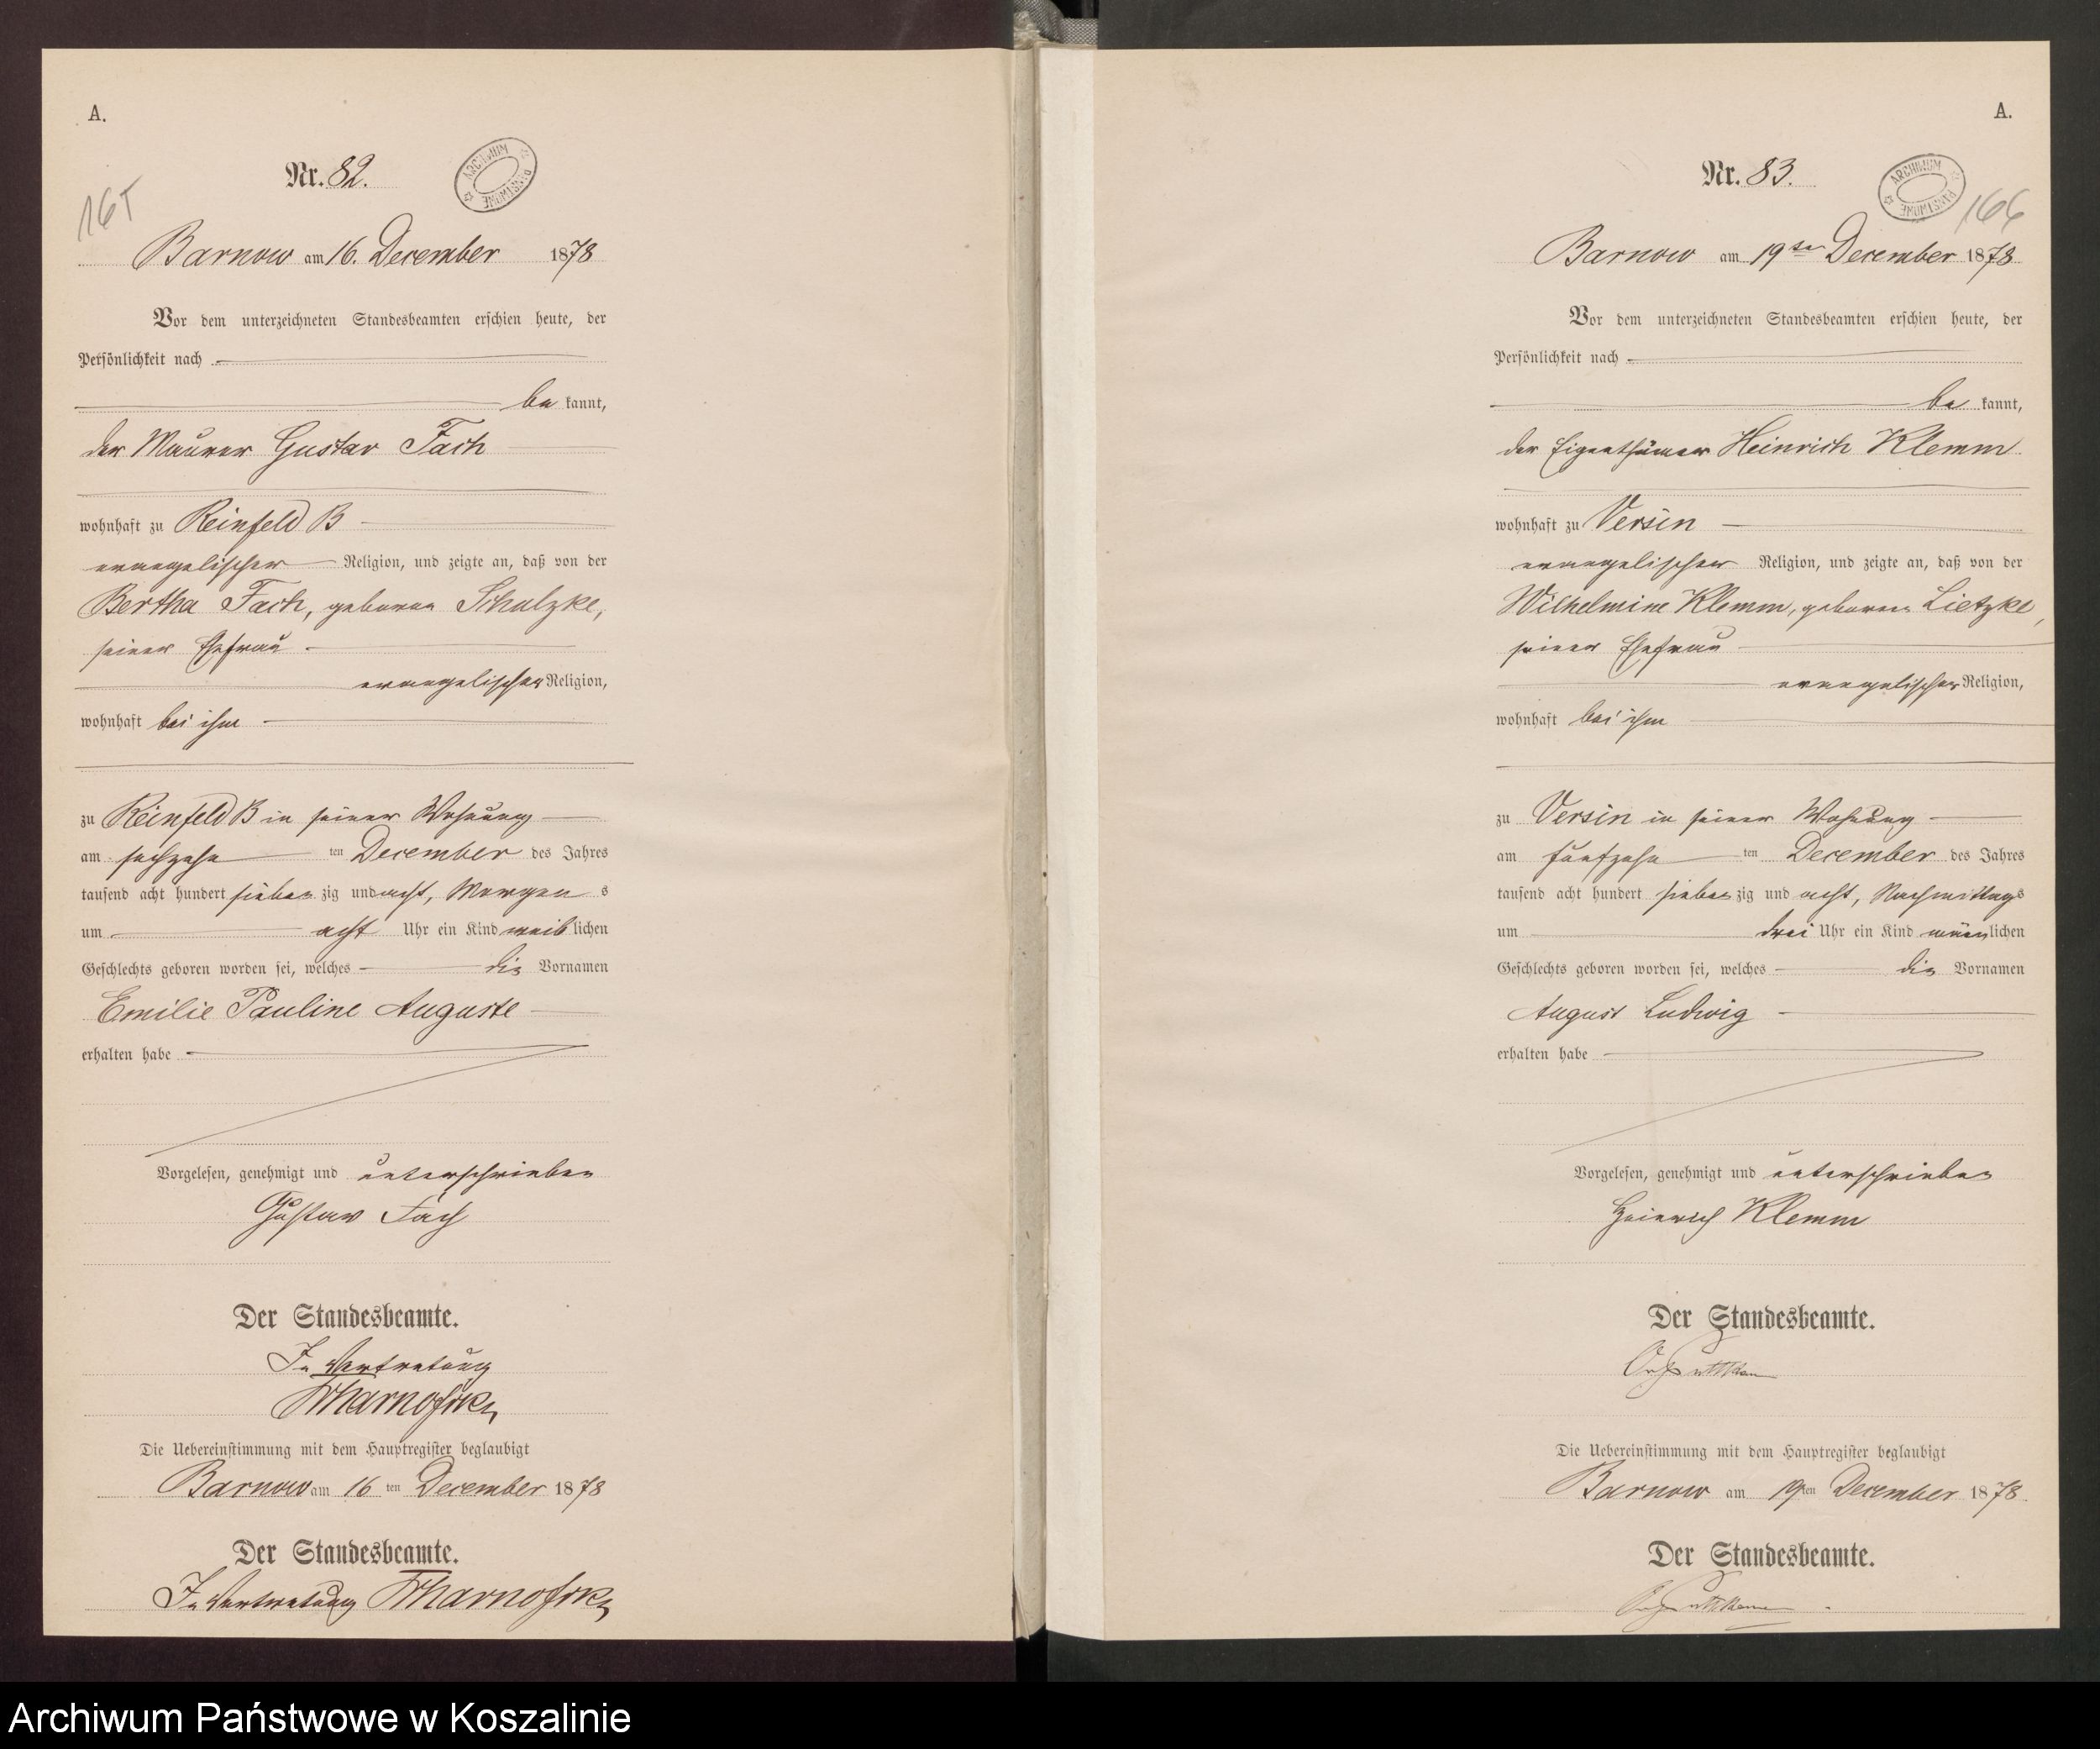 A.
Nr. 82.
ARCHIWUM PAŃSTWOWE
Barnow am 16. December 1878
Vor dem unterzeichneten Standesbeamten erschien heute, der
Persönlichkeit nach
be kannt,
der Maurer Gustav Fach
wohnhaft zu Reinfeld B
evangelischer Religion, und zeigte an, daß von der
Bertha Fach, geboren Schulzke,
seiner Ehefrau
evangelischer Religion,
wohnhaft bei ihm
zu Reinfeld B in seiner Wohnung
am sechzehn ten December des Jahres
tausend acht hundert sieben zig und acht, Morgen s
um acht Uhr ein Kind weib lichen
Geschlechts geboren worden sei, welches die Vornamen
Emilie Pauline Auguste
erhalten habe
Vorgelesen, genehmigt und unterschrieben
Gustav Fach
Der Standesbeamte.
In Vertretung
Die Uebereinstimmung mit dem Hauptregister beglaubigt
Barnow am 16 ten December 1878
Der Standesbeamte.
In Vertretung
A.
Nr. 83.
ARCHIWUM PAŃSTWOWE
166
Barnow am 19ten December 1878
Vor dem unterzeichneten Standesbeamten erschien heute, der
Persönlichkeit nach
be kannt,
der Eigenthümer Heinrich Klemm
wohnhaft zu Versin
evangelischer Religion, und zeigte an, daß von der
Wilhelmine Klemm, geboren Lietzke,
seiner Ehefrau
evangelischer Religion,
wohnhaft bei ihm
zu Versin in seiner Wohnung
am fünfzehn ten December des Jahres
tausend acht hundert sieben zig und acht, Nachmittags
um drei Uhr ein Kind männlichen
Geschlechts geboren worden sei, welches die Vornamen
August Ludwig
erhalten habe
Vorgelesen, genehmigt und unterschrieben
Heinrich Klemm
Der Standesbeamte.
Die Uebereinstimmung mit dem Hauptregister beglaubigt
Barnow am 19 ten December 1878
Der Standesbeamte.
Archiwum Państwowe w Koszalinie